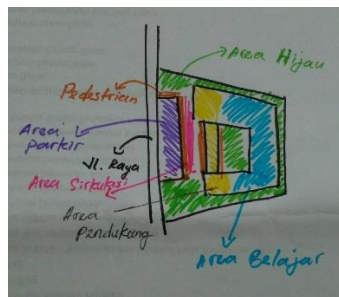 Area Hijau
Pedestrian
Area
parkir
Jl. Raya
Area Sirkulasi
Area
Pendukung
Area Belajar